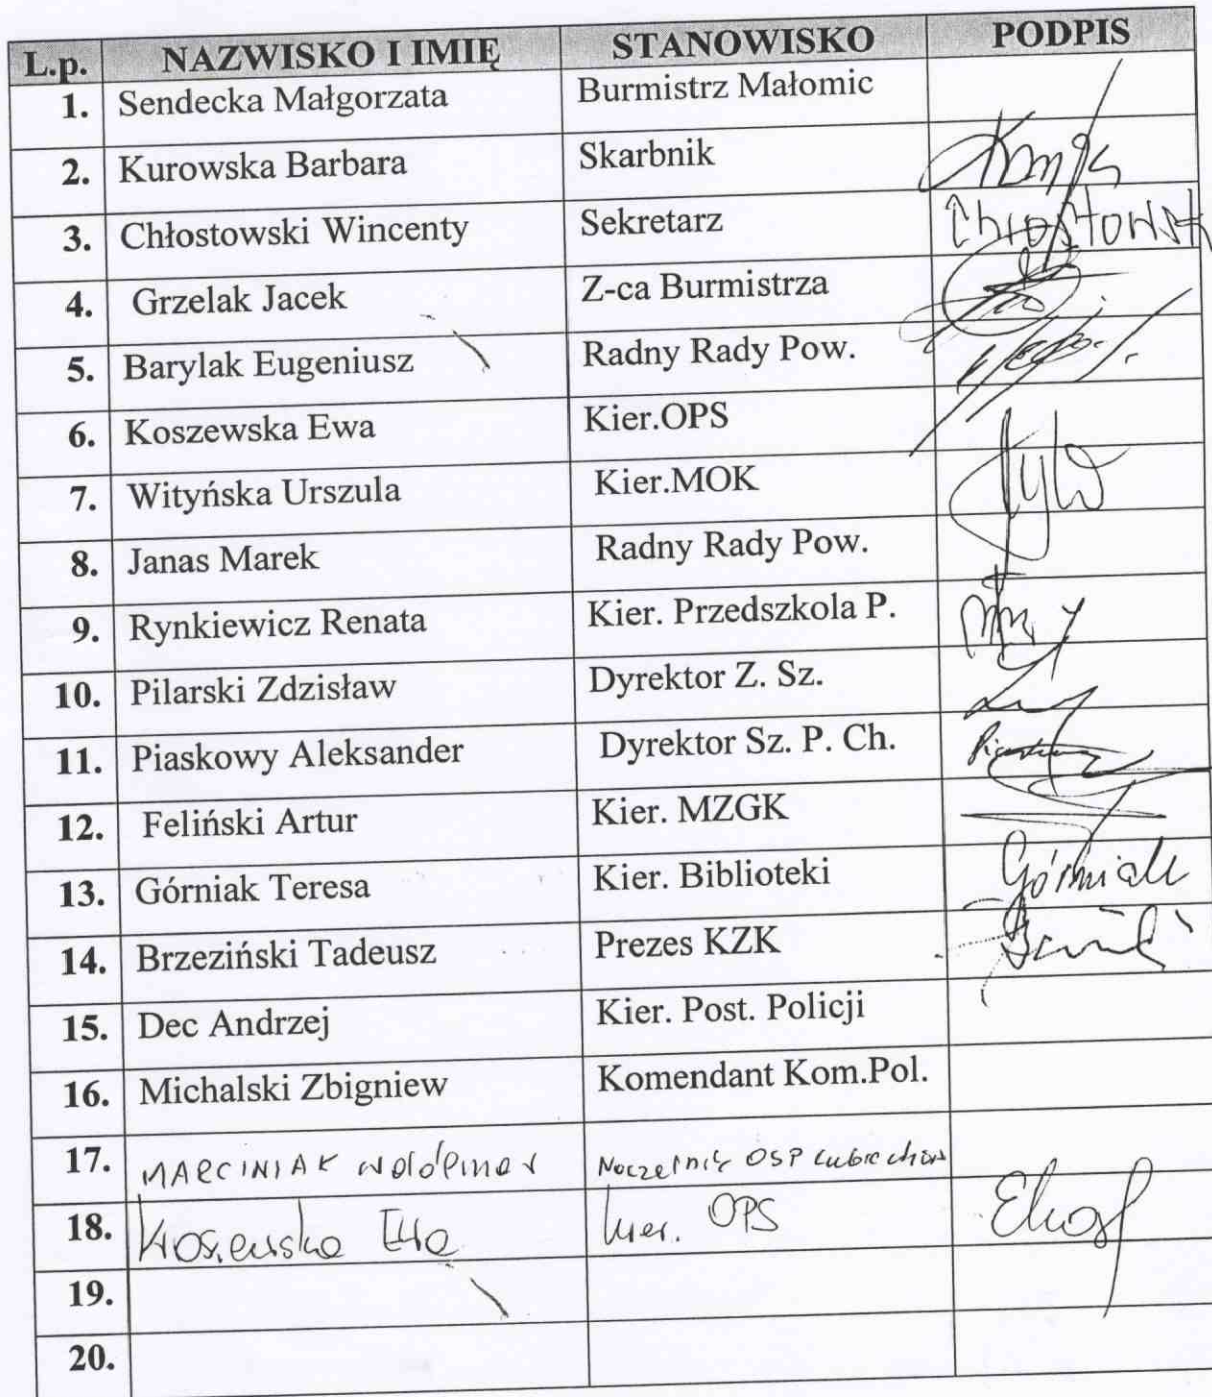 L.p. NAZWISKO I IMIĘ STANOWISKO PODPIS
1. Sendecka Małgorzata Burmistrz Małomic
2. Kurowska Barbara Skarbnik
3. Chłostowski Wincenty Sekretarz
4. Grzelak Jacek Z-ca Burmistrza
5. Barylak Eugeniusz Radny Rady Pow.
6. Koszewska Ewa Kier.OPS
7. Wityńska Urszula Kier.MOK
8. Janas Marek Radny Rady Pow.
9. Rynkiewicz Renata Kier. Przedszkola P.
10. Pilarski Zdzisław Dyrektor Z. Sz.
11. Piaskowy Aleksander Dyrektor Sz. P. Ch.
12. Feliński Artur Kier. MZGK
13. Górniak Teresa Kier. Biblioteki Górniak
14. Brzeziński Tadeusz Prezes KZK
15. Dec Andrzej Kier. Post. Policji
16. Michalski Zbigniew Komendant Kom.Pol.
17. MARCINIAK Naczelnik OSP
18. Ewa kier. OPS
19.
20.